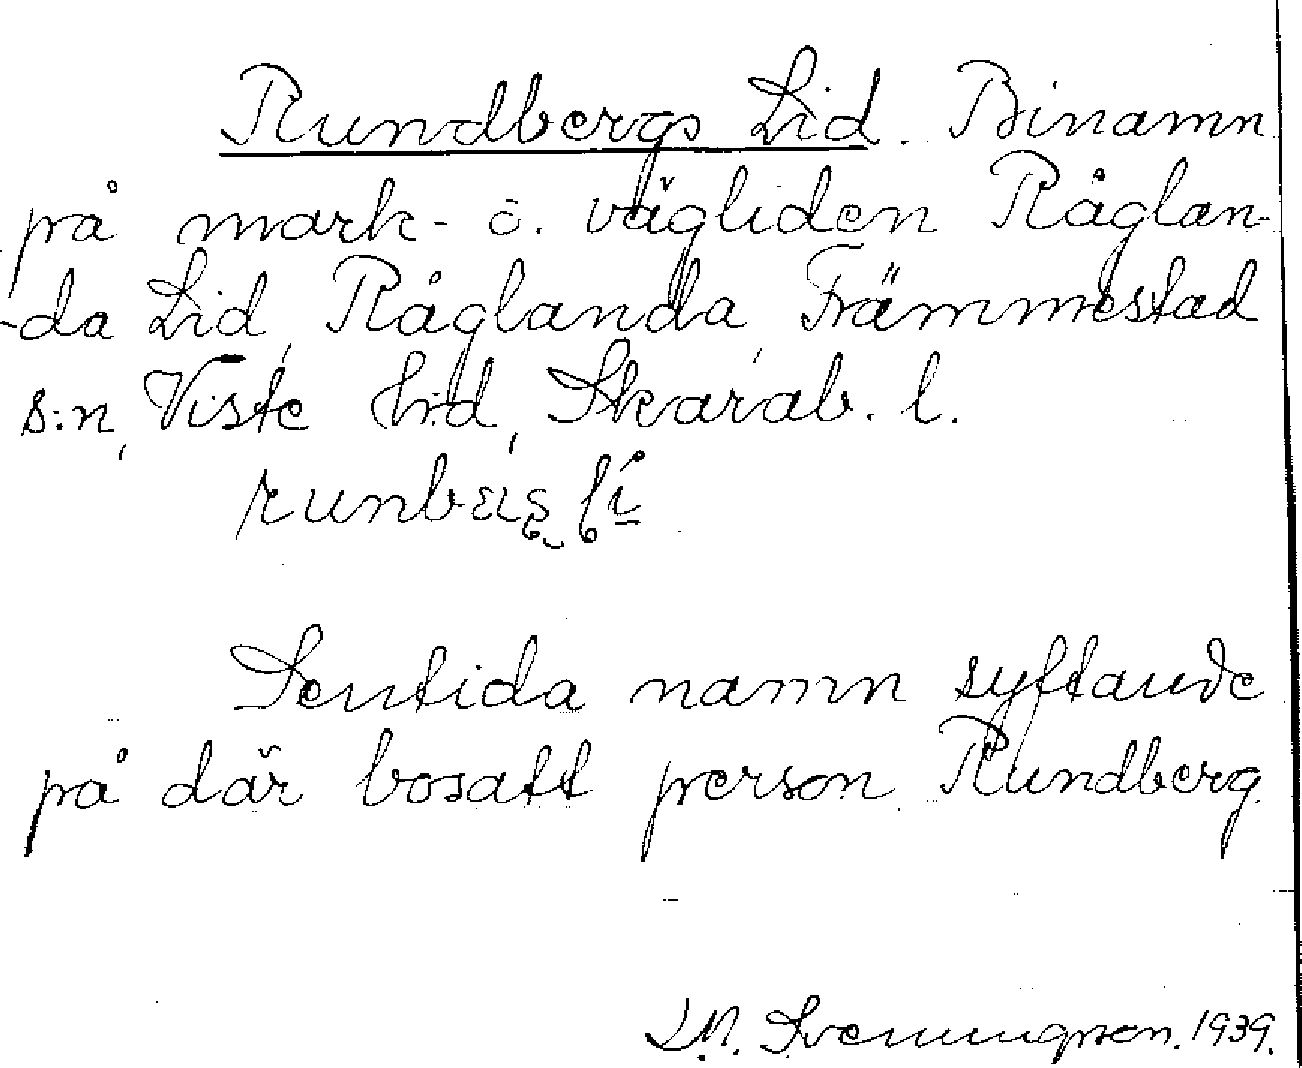 Rundbergs Lid. Binamn
på mark- o. vägliden Råglan-
-da Lid, Råglanda, Främmestad
s:n, Viste h:d, Skarab. l.
Sentida namn syftande
på där bosatt person Rundberg.
Sveningson. 1939.